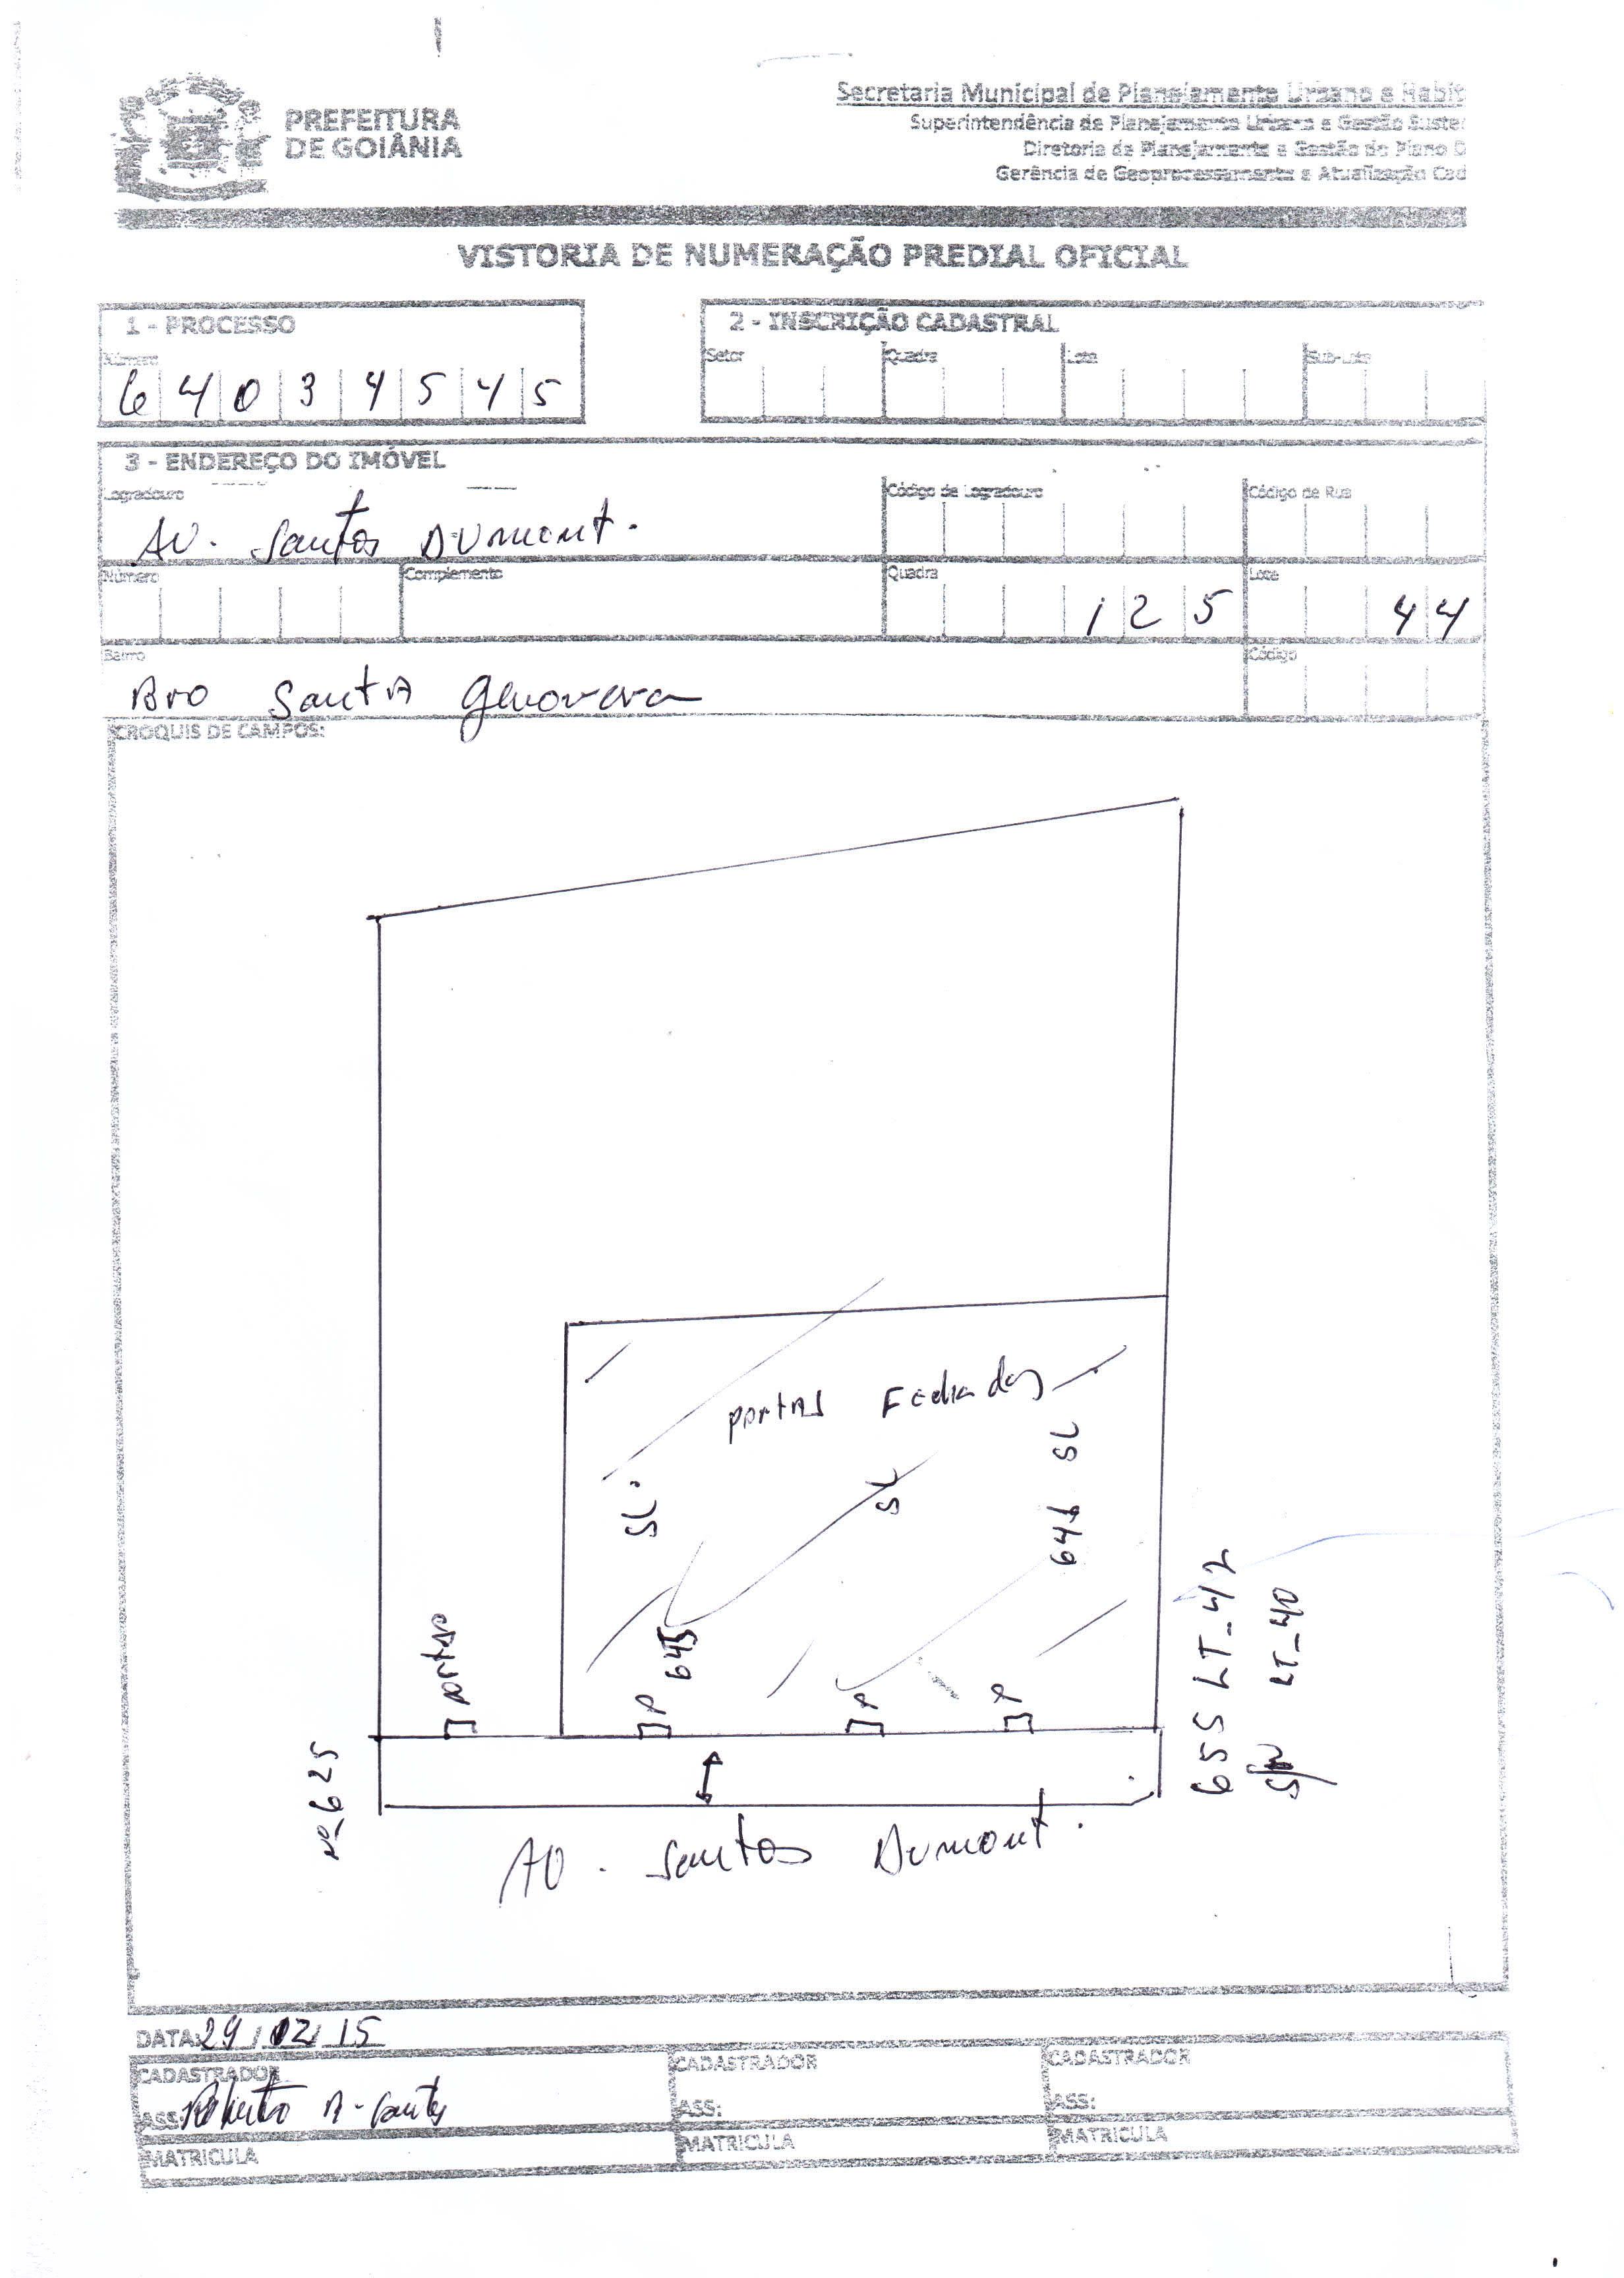 PREFEITURA
DE GOIÂNIA
Secretaria Municipal de Planejamento Urbano e Habit
Superintendência de Planejamento Urbano e Gestão Susten
Diretoria de Planejamento e Gestão do Plano D
Gerência de Geoprocessamento e Atualização Cad
VISTORIA DE NUMERAÇÃO PREDIAL OFICIAL
1 - PROCESSO
Número
6 4 0 3 4 5 4 5
2 - INSCRIÇÃO CADASTRAL
Setor Quadra Lote Sub-Lote
3 - ENDEREÇO DO IMÓVEL
Logradouro Código de Logradouro Código de Rua
AV. Santos Dumont.
Número Complemento Quadra Lote
1 2 5 4 4
Bairro Código
Bro Santa Genoveva
CROQUIS DE CAMPOS:
portas Fechadas
SL.
SL
646 SL
portão
P 645
P
P
Nº 625
655 LT-42
S/N LT-40
AV. Santos Dumont.
DATA: 29/02/15
CADASTRADOR CADASTRADOR CADASTRADOR
ASS: Roberto A. Santos ASS: ASS:
MATRICULA MATRICULA MATRICULA